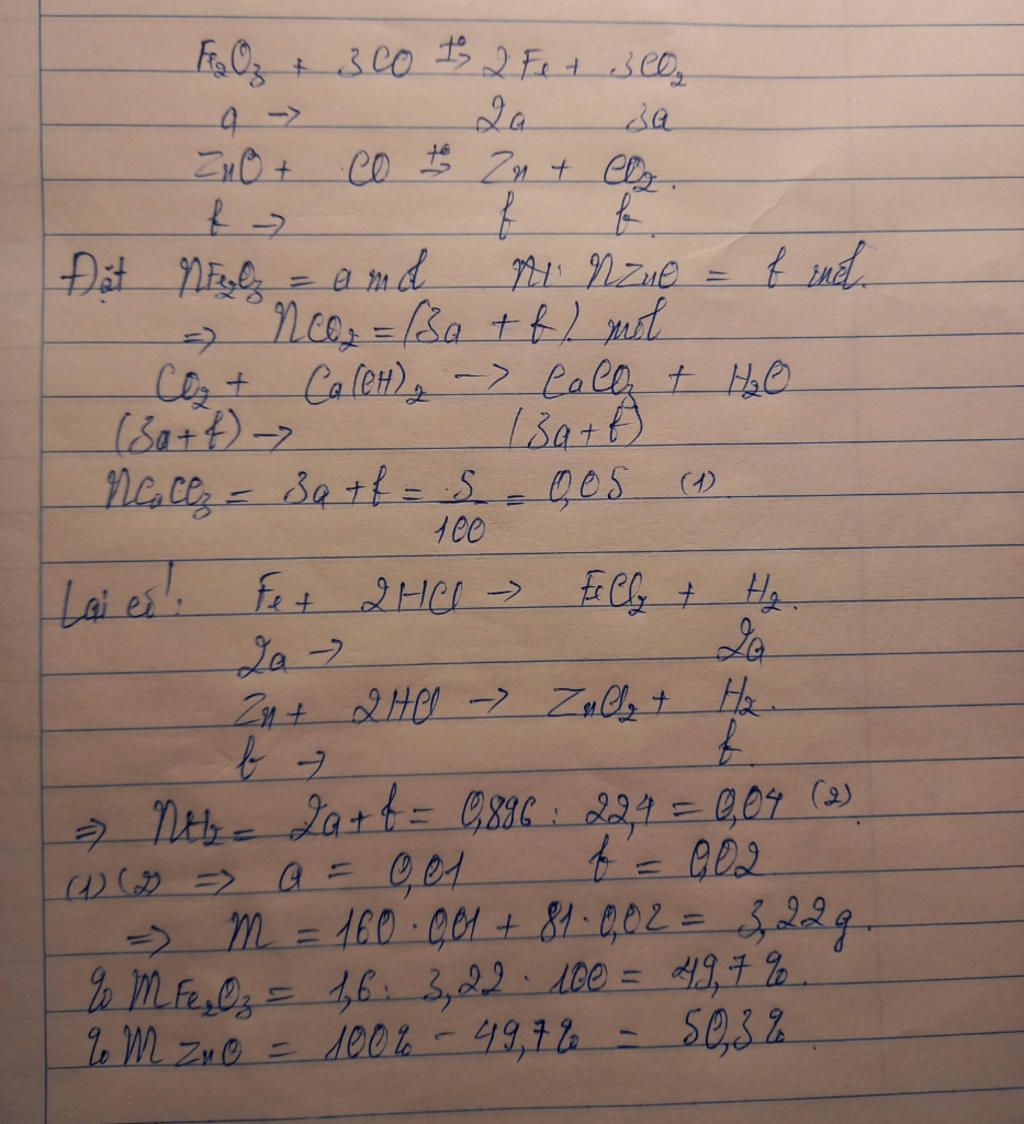 Fe₂O₃ + 3CO t°→ 2Fe + 3CO₂
a → 2a 3a
ZnO + CO t°→ Zn + CO₂.
b → b b.
Đặt nFe₂O₃ = a mol nZnO = b mol.
=> nCO₂ = (3a + b) mol
CO₂ + Ca(OH)₂ → CaCO₃ + H₂O
(3a+b) → (3a+b)
nCaCO₃ = 3a + b = 5/100 = 0,05 (1)
Lại có: Fe + 2HCl → FeCl₂ + H₂.
2a → 2a
Zn + 2HCl → ZnCl₂ + H₂.
b → b.
=> nH₂ = 2a + b = 0,896 : 22,4 = 0,04 (2)
(1)(2) => a = 0,01 b = 0,02
=> m = 160 . 0,01 + 81 . 0,02 = 3,22g.
% mFe₂O₃ = 1,6 : 3,22 . 100 = 49,7%.
% mZnO = 100% - 49,7% = 50,3%.